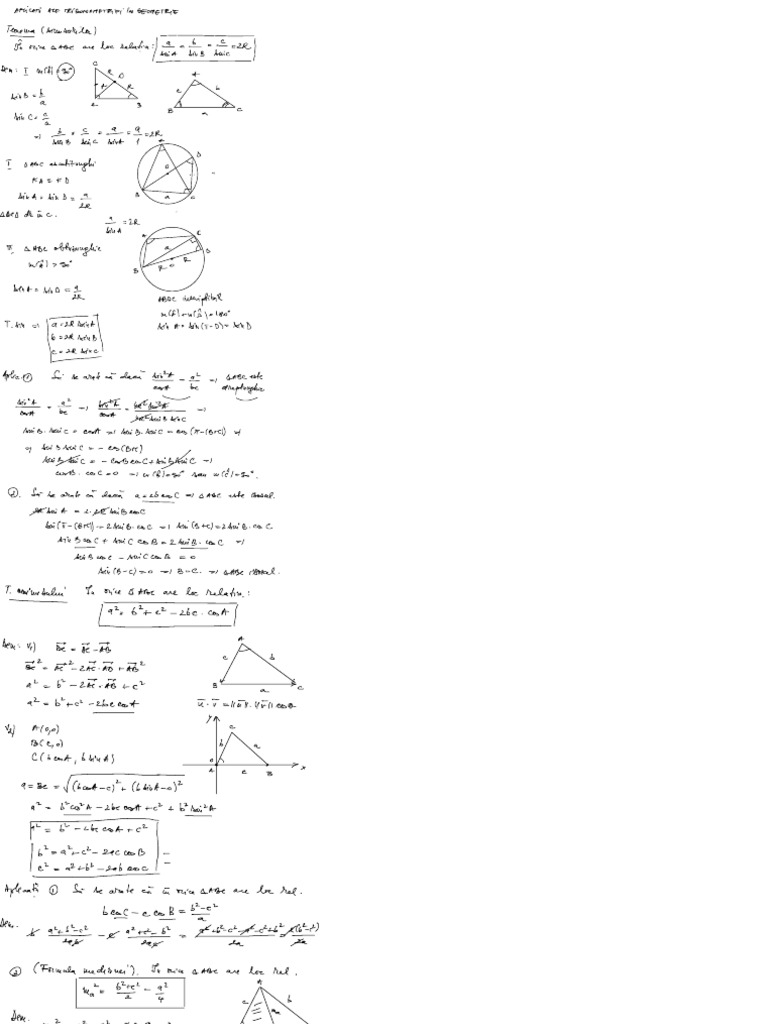 APLICAȚII ALE TRIGONOMETRIEI ÎN GEOMETRIE
Teorema (sinusului)
În orice ΔABC are loc relația: a/sin A = b/sin B = c/sin C = 2R
Dem: I m(Â) = 90°
sin B = b/a
sin C = c/a
⇒ b/sin B = c/sin C = a/sin A = a/1 = 2R
II ΔABC ascuțitunghic
∢A ≡ ∢D
sin A = sin D = a/2R
ΔBCD dr. în C.
a/sin A = 2R
ΔABC obtuzunghic
m(Â) > 90°
sin A = sin D = a/2R
ABDC inscriptibil
m(Â) + m(D̂) = 180°
sin A = sin(π-D) = sin D
T. sin ⇒ a = 2R sin A
b = 2R sin B
c = 2R sin C
Aplic. ① Să se arate că dacă sin²A/cos A = a²/bc ⇒ ΔABC este dreptunghic
sin²A/cos A = a²/bc ⇒ sin²A/cos A = 4R² sin²A/4R² sin B sin C ⇒
sin B · sin C = cos A ⇒ sin B · sin C = cos(π-(B+C)) ⇒
⇒ sin B sin C = - cos(B+C)
sin B sin C = - cos B cos C + sin B sin C ⇒
cos B · cos C = 0 ⇒ m(B̂) = 90° sau m(Ĉ) = 90°.
②. Să se arate că dacă a = 2b cos C ⇒ ΔABC este isoscel.
2R sin A = 2·2R sin B cos C
sin(π-(B+C)) = 2 sin B · cos C ⇒ sin(B+C) = 2 sin B · cos C
sin B cos C + sin C cos B = 2 sin B · cos C ⇒
sin B cos C - sin C cos B = 0
sin(B-C) = 0 ⇒ B = C ⇒ ΔABC isoscel.
T. cosinusului În orice ΔABC are loc relația:
a² = b² + c² - 2bc · cos A
Dem: V₁) BC = AC - AB
BC² = AC² - 2AC · AB + AB²
a² = b² - 2AC · AB + c²
a² = b² + c² - 2bc cos A
u · v = ||u|| · ||v|| cos θ
V₂) A(0,0)
B(c,0)
C(b cos A, b sin A)
a = BC = √((b cos A - c)² + (b sin A - 0)²)
a² = b² cos² A - 2bc cos A + c² + b² sin² A
a² = b² - 2bc cos A + c²
b² = a² + c² - 2ac cos B
c² = a² + b² - 2ab cos C
Aplicații ① Să se arate că în orice ΔABC are loc rel.
b cos C - c cos B = b²-c²/a
Dem. b a²+b²-c²/2ab - c a²+c²-b²/2ac = a²+b²-c²-a²-c²+b²/2a = 2(b²-c²)/2a
② (Formula medianei). În orice ΔABC are loc rel.
mₐ² = b²+c²/2 - a²/4
Dem.